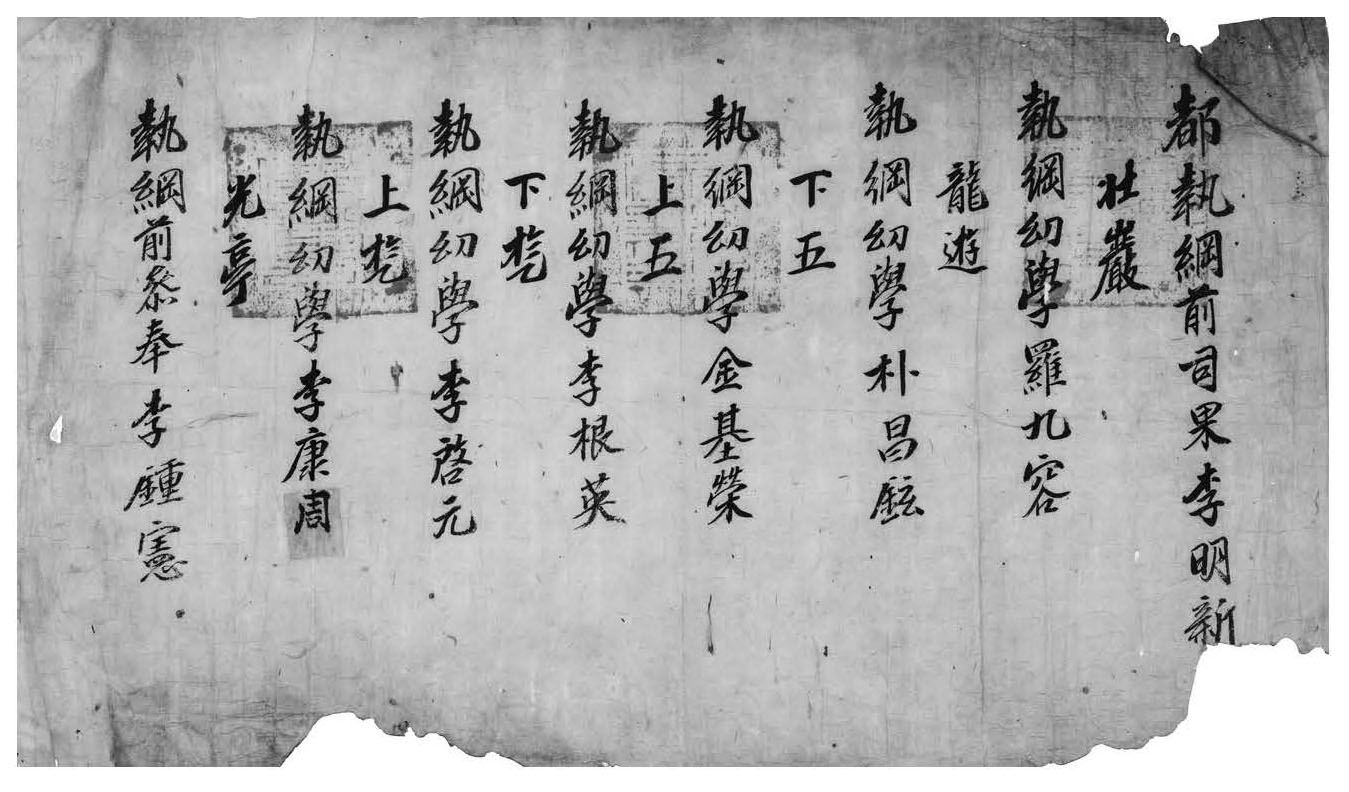 都執綱前司果李明新
壯巖
執綱幼學羅九容
龍遊
執綱幼學朴昌鉉
下五
執綱幼學金基榮
上五
執綱幼學李根英
下
執綱幼學李啓元
上
執綱幼學李康周
光亭
執綱前叅奉李鍾憲